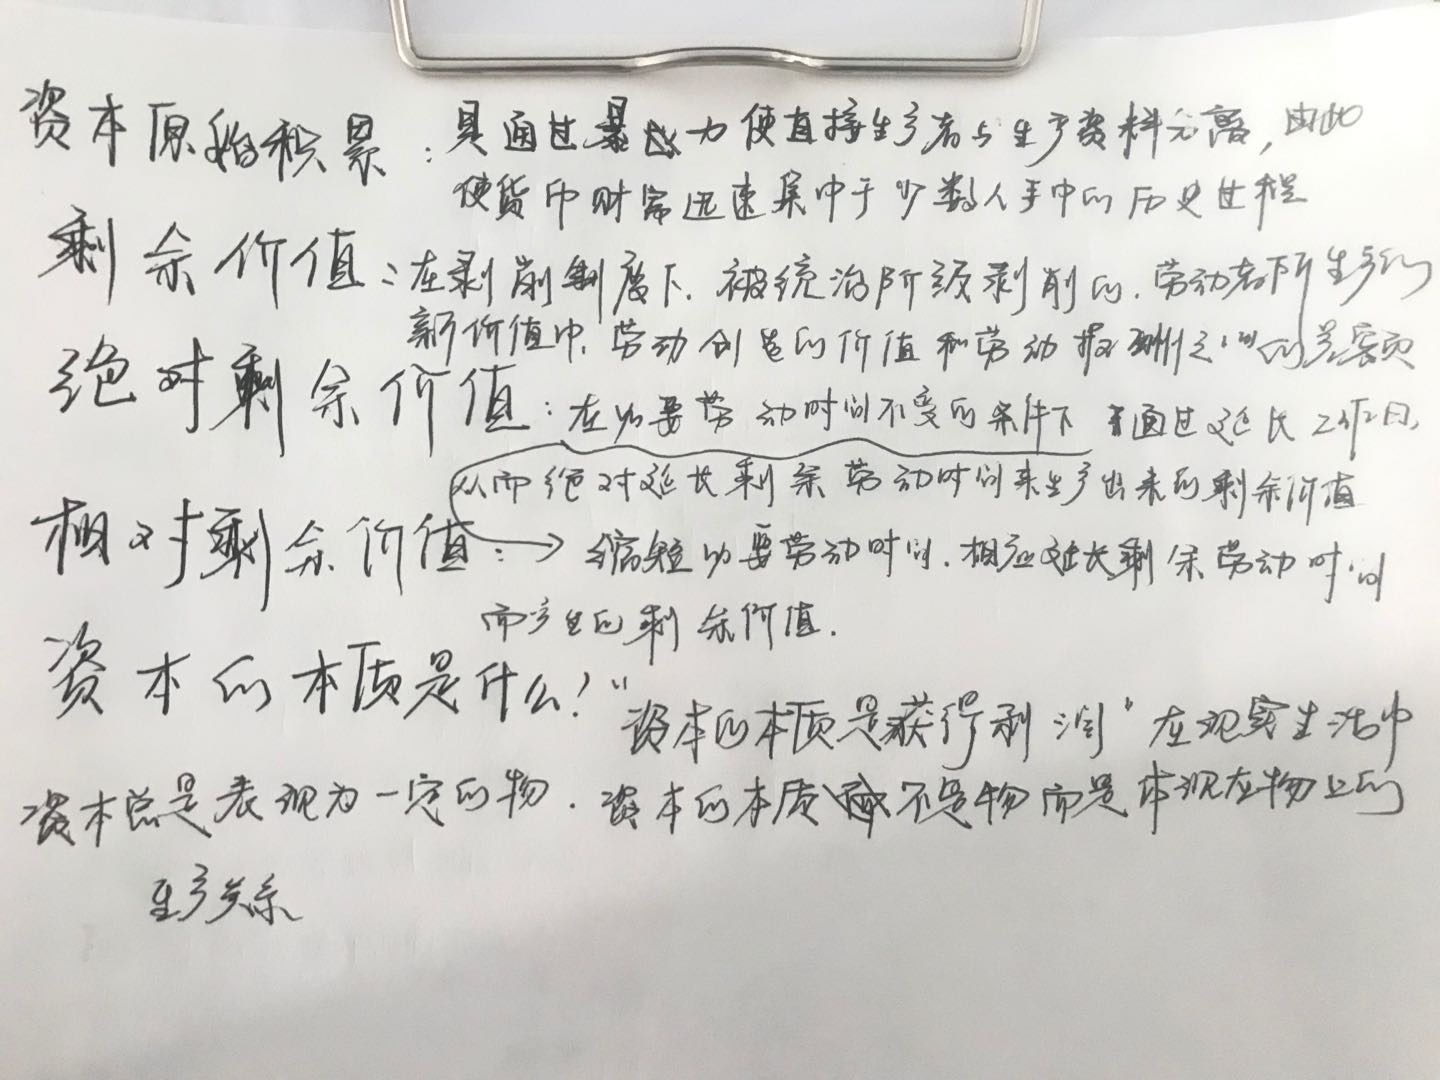 资本原始积累：是通过暴力使直接生产者与生产资料分离，由此
使货币财富迅速集中于少数人手中的历史过程
剩余价值：在剥削制度下，被统治阶级剥削的，劳动者所生产的
新价值中，劳动创造的价值和劳动报酬之间的差额
绝对剩余价值：在必要劳动时间不变的条件下 通过延长工作日，
从而绝对延长剩余劳动时间来生产出来的剩余价值
相对剩余价值：→缩短必要劳动时间，相应延长剩余劳动时间
而产生的剩余价值.
资本的本质是什么？
"资本的本质是获得利润"在现实生活中
资本总是表现为一定的物，资本的本质不是物而是体现在物上的
生产关系